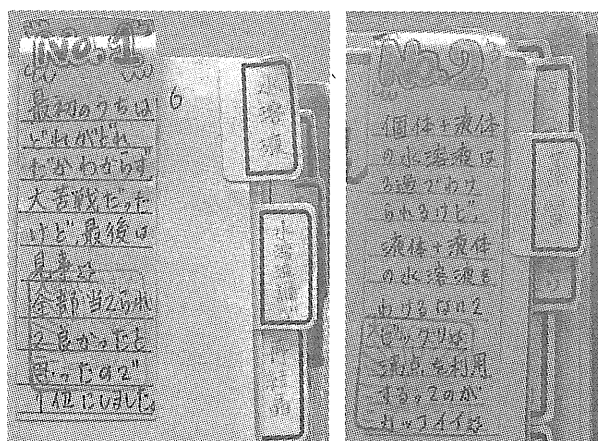 No.1
最初のうちは
どれがどれ
だかわからず
大苦戦だった
けど、最後は
見事
全部当てられ
て良かったと
思ったので
1位にしました。
6
水溶液
No.2
個体+液体
の水溶液は
ろ過でわけ
られるけど、
液体+液体
の水溶液を
わけるなんて
ビックリ
沸点を利用
するってのが
カッコイイ